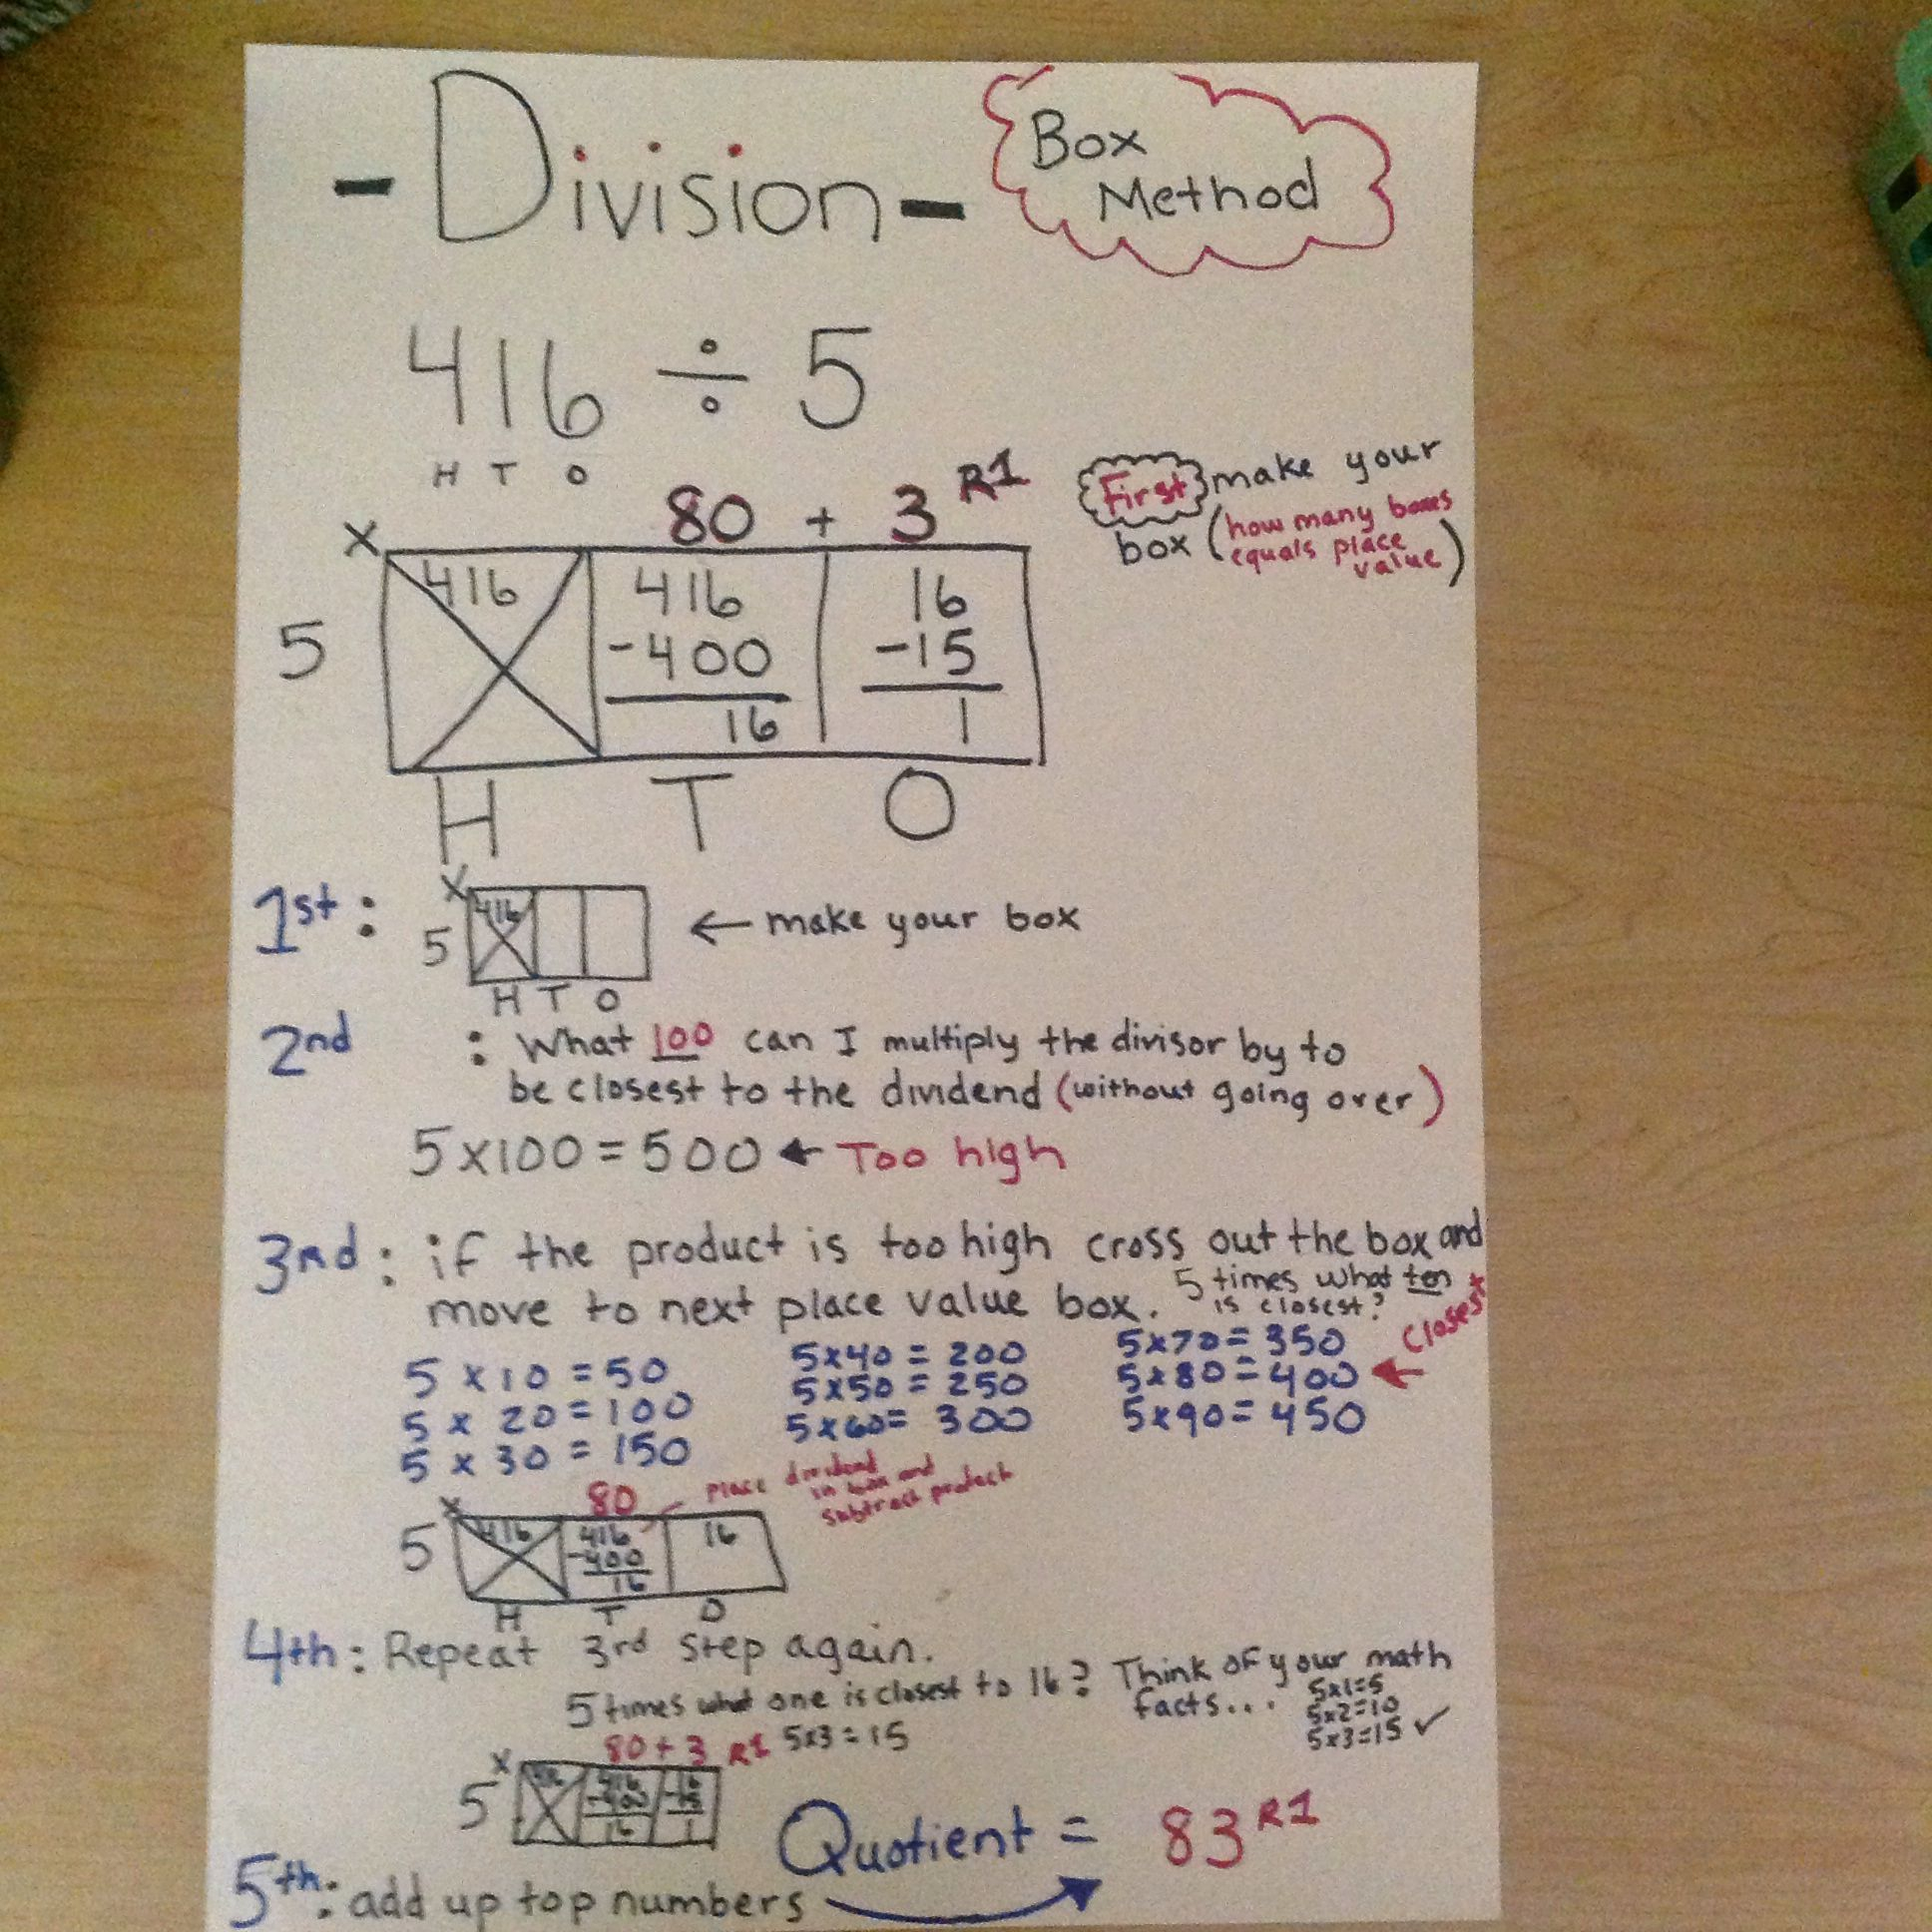 - Division -
Box
Method
416 ÷ 5
H T O
First make your
box (how many boxes
equals place
value)
80 + 3 R1
x
416 416 16
5 -400 -15
16 1
H T O
1st: x 416 ← make your box
5
H T O
2nd : What 100 can I multiply the divisor by to
be closest to the dividend (without going over)
5 x 100 = 500 ← Too high
3rd: if the product is too high cross out the box and
move to next place value box. 5 times what ten
is closest?
5 x 10 = 50
5 x 20 = 100
5 x 30 = 150
5x40 = 200
5x50 = 250
5x60= 300
5x70= 350
5x80=400 ← closest
5x90= 450
80
place dividend
in box and
subtract
x
416 416 16
5 -400
16
H T O
4th: Repeat 3rd step again.
5 times what one is closest to 16? Think of your math
facts...
5x1=5
5x2=10
5x3=15 ✓
80+3 R1 5x3=15
x
416 416 16
5 -400 -15
16 1
Quotient = 83 R1
5th: add up top numbers